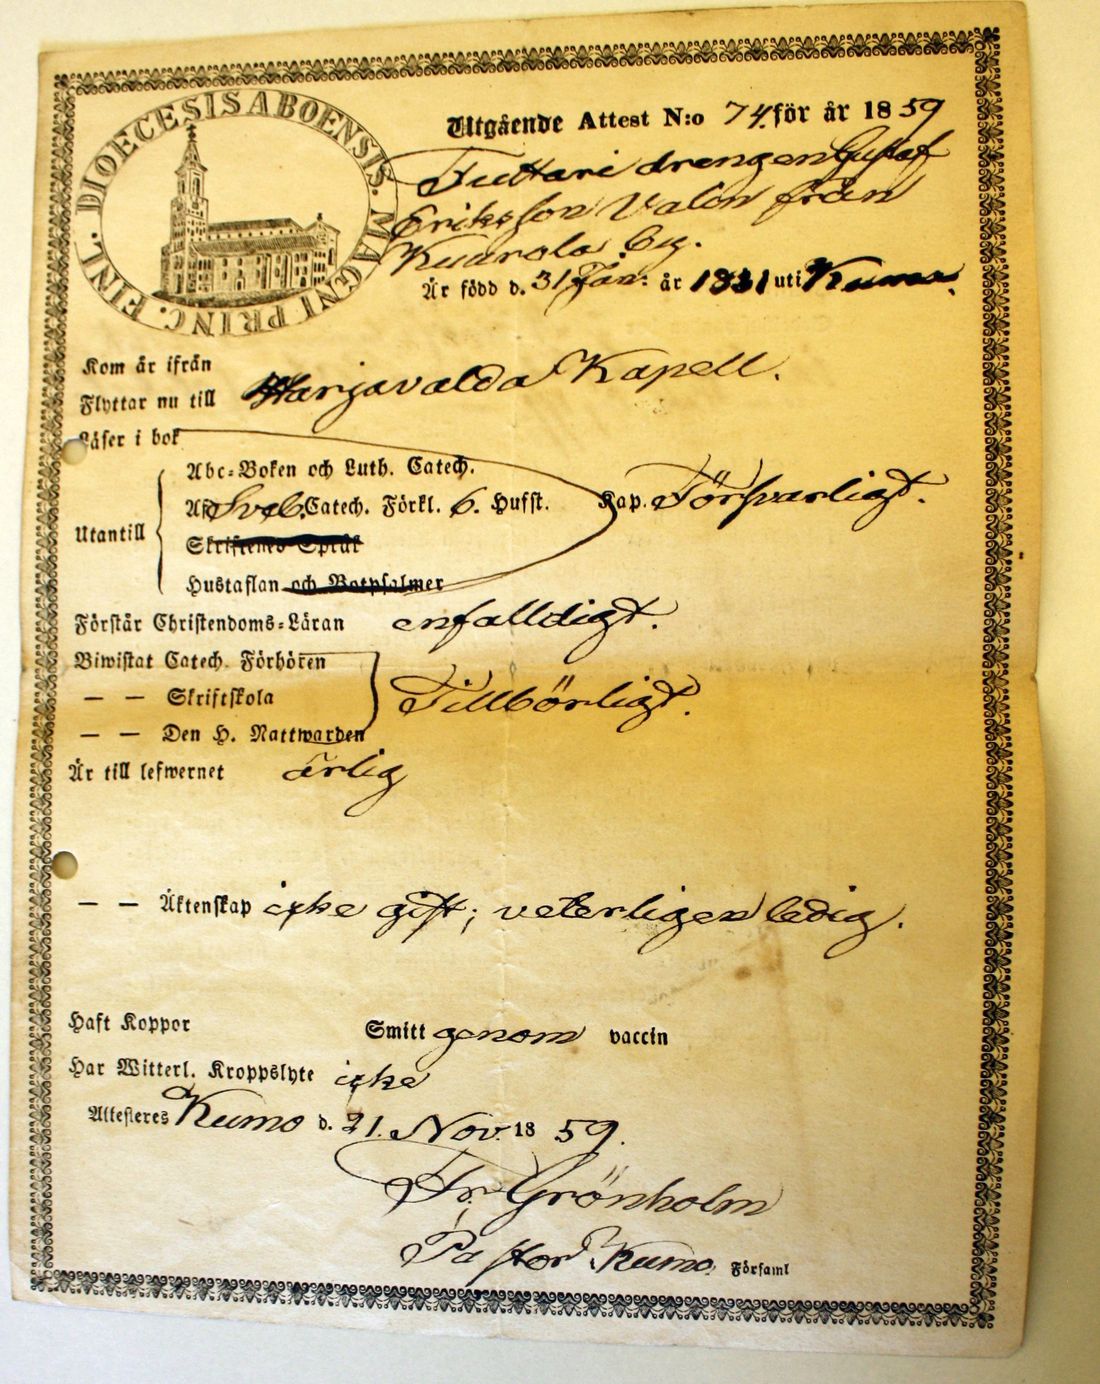 FINL. DIOECESIS ABOENSIS. MAGNI PRINC.
Utgående Attest N:o 74. för år 1859
drengen Gustaf
Eriksson Valin från
by.
Är född d. 31 Jan: år 1831 uti Kumo.
Kom är ifrån
Flyttar nu till Harjavalda Kapell.
Läser i bok
Abc-Boken och Luth. Catech.
Af Sveb. Catech. Förkl. 6. Hufst. Kap. Försvarligt.
Utantill
Skriftenes Språk
Hustaflan och Botpsalmer
Förstår Christendoms-Läran enfalldigt.
Biwistat Catech. Förhören
— — Skriftskola Tillbörligt.
— — Den H. Nattwarden
Är till lefwernet ärlig
— — Äktenskap icke gift; veterligen ledig.
Haft Koppor Smitt genom vaccin
Har Witterl. Kroppslyte icke
Attesteres Kumo d. 21. Nov. 1859.
Fr. Grönholm
Pastor i Kumo Församl